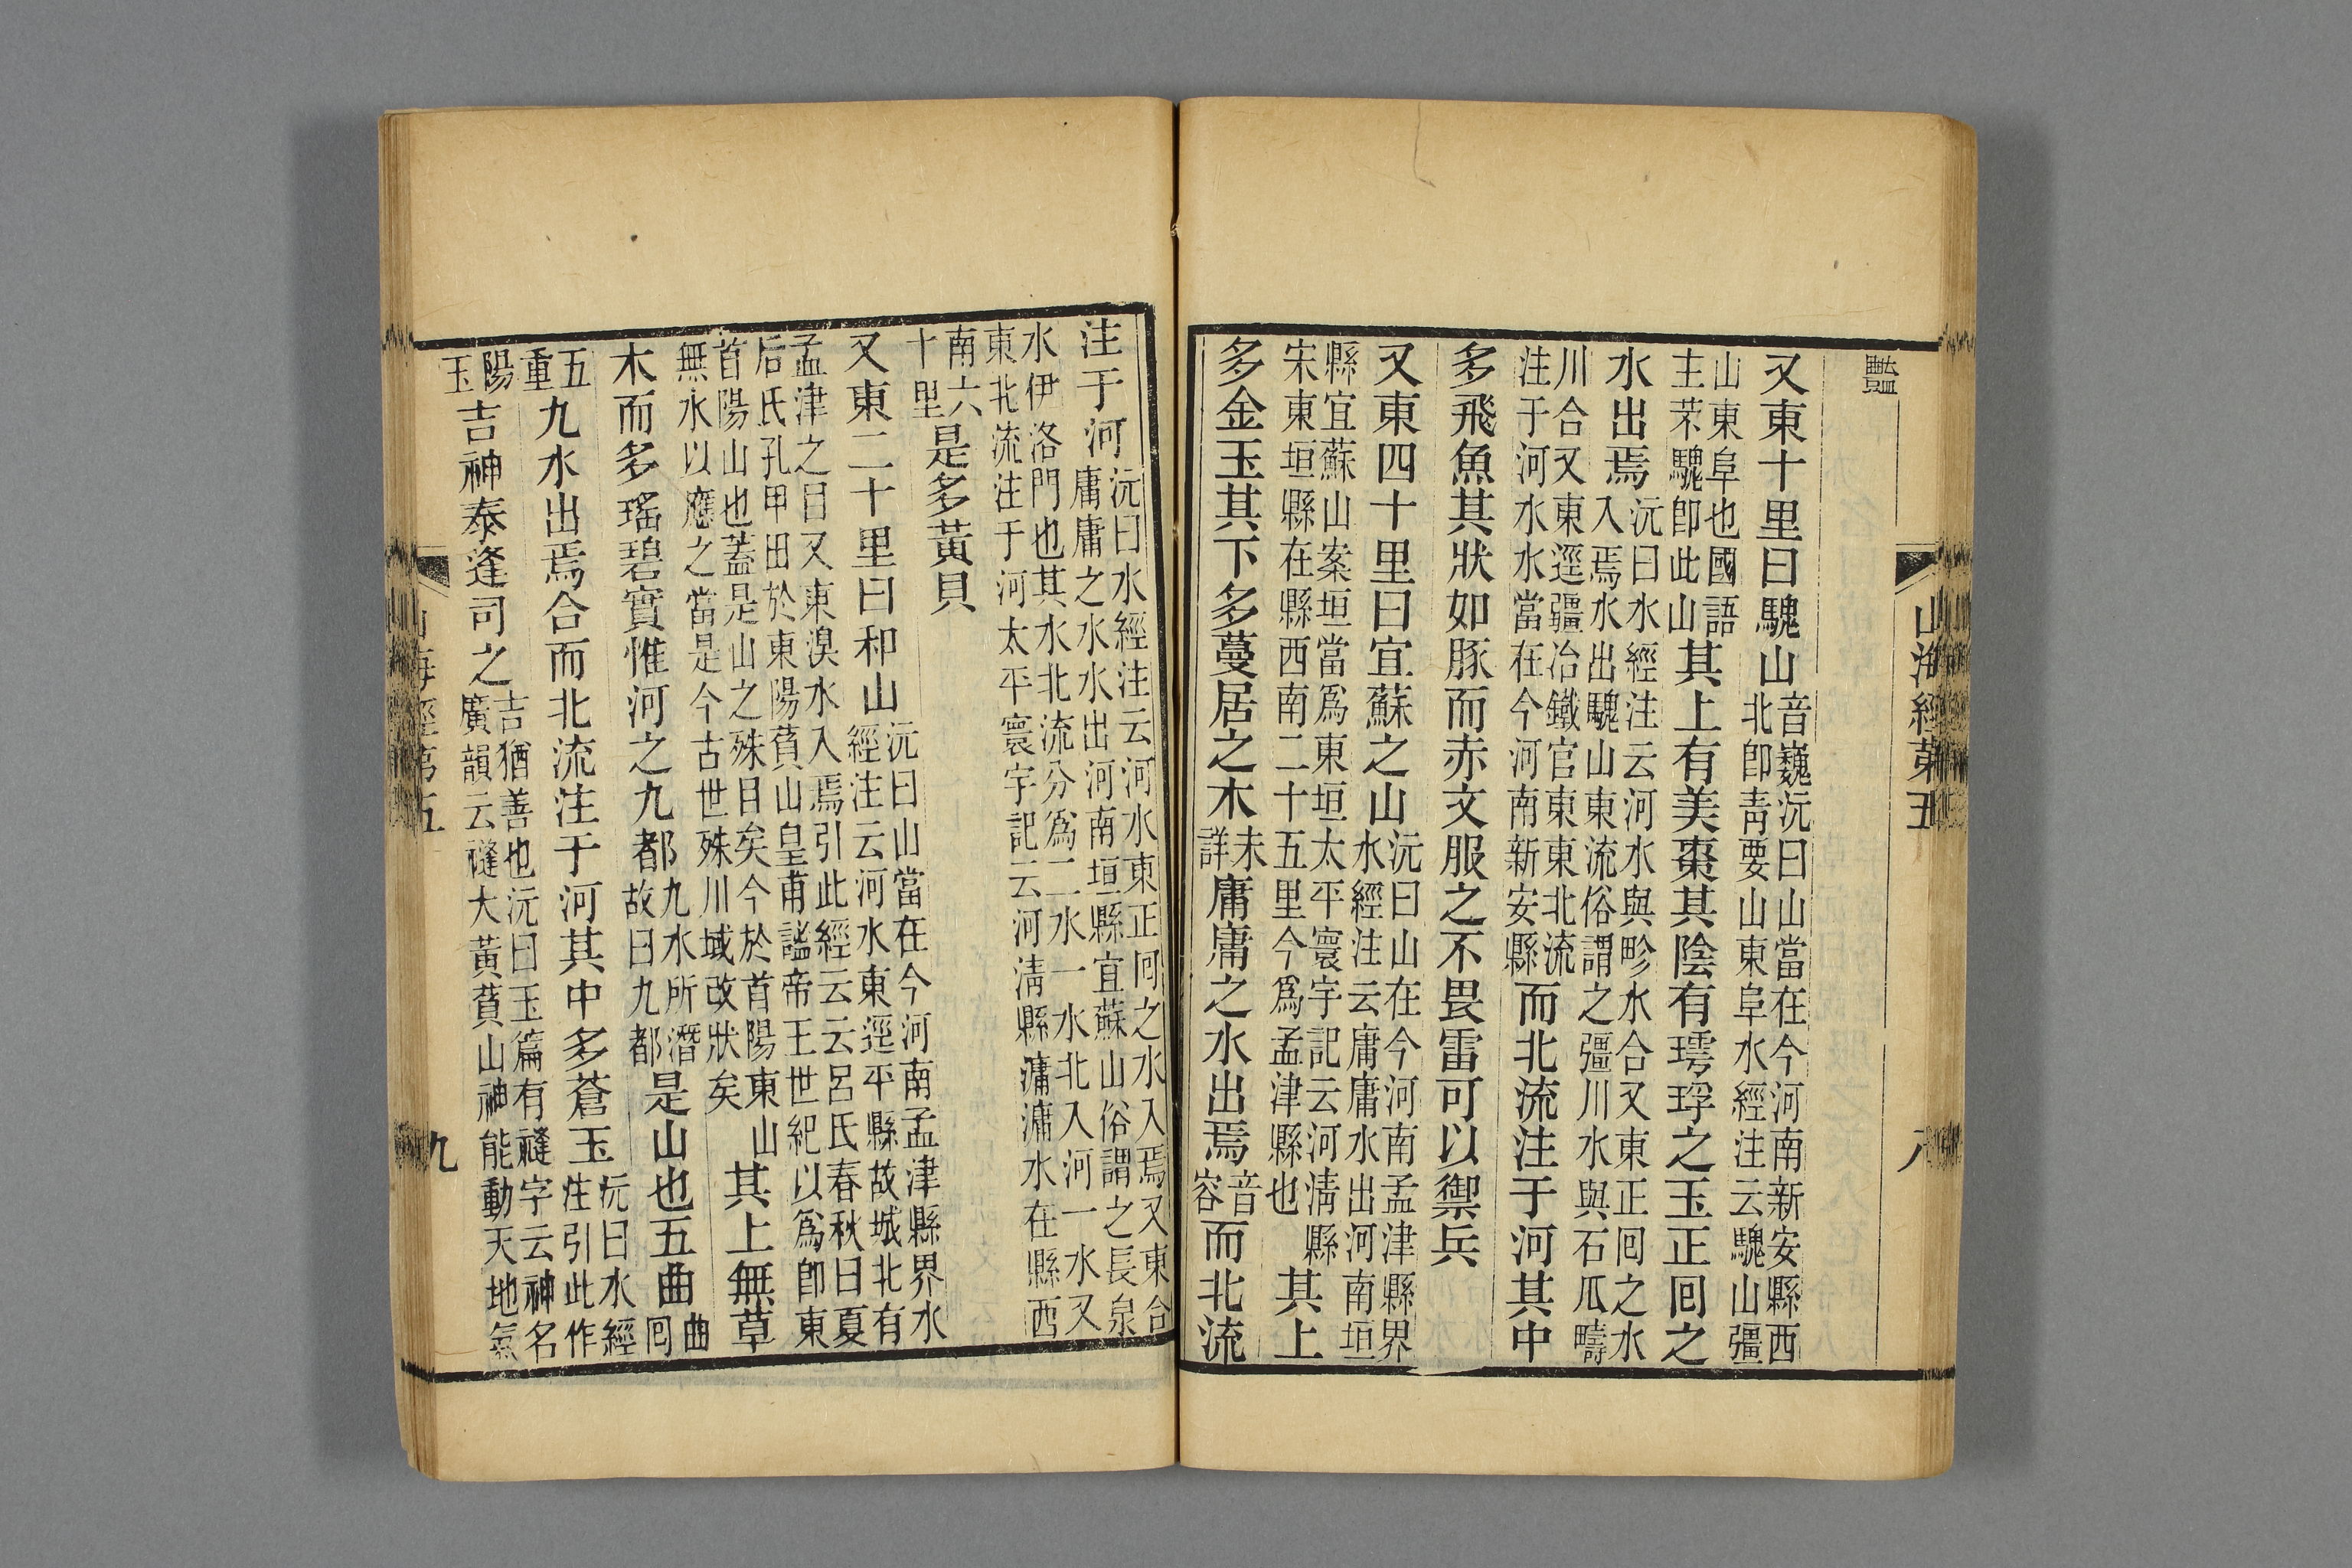 豔
又東十里曰騩山音巍沅曰山當在今河南新安縣西
北卽青要山東阜水經注云騩山彊
山東阜也國語
主芣騩卽此山其上有美棗其陰有㻬琈之玉正回之
水出焉沅曰水經注云河水與畛水合又東正回之水
入焉水出騩山東流俗謂之彊川水與石瓜疇
川合又東逕彊冶鐵官東東北流
注于河水水當在今河南新安縣而北流注于河其中
多飛魚其狀如豚而赤文服之不畏雷可以禦兵
又東四十里曰宜蘇之山沅曰山在今河南孟津縣界
水經注云庸庸水出河南垣
縣宜蘇山案垣當爲東垣太平寰宇記云河淸縣
宋東垣縣在縣西南二十五里今爲孟津縣也其上
多金玉其下多蔓居之木未
詳庸庸之水出焉音
容而北流
山海經第五
八
注于河沅曰水經注云河水東正回之水入焉又東合
庸庸之水水出河南垣縣宜蘇山俗謂之長泉
水伊洛門也其水北流分爲二水一水北入河一水又
東北流注于河太平寰宇記云河淸縣滽滽水在縣西
南六
十里是多黃貝
又東二十里曰和山沅曰山當在今河南孟津縣界水
經注云河水東逕平縣故城北有
孟津之目又東溴水入焉引此經云云呂氏春秋曰夏
后氏孔甲田於東陽萯山皇甫謐帝王世紀以爲卽東
首陽山也蓋是山之殊目矣今於首陽東山
無水以應之當是今古世殊川域改狀矣其上無草
木而多瑤碧實惟河之九都九水所潛
故曰九都是山也五曲曲
囘
五
重九水出焉合而北流注于河其中多蒼玉沅曰水經
注引此作
陽
玉吉神泰逢司之吉猶善也沅曰玉篇有䙜字云神名
廣韻云䙜大黃萯山神能動天地氣
山海經第五
九